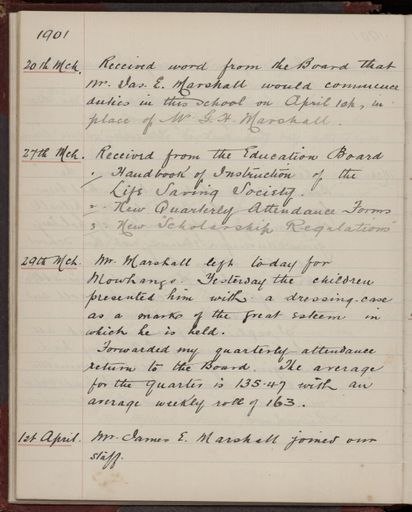 1901
20th Mch. Received word from the Board that
Mr. Jas. E. Marshall would commence
duties in this school on April 1st, in
place of Mr G. H. Marshall.
27th Mch. Received from the Education Board
1 Handbook of Instruction of the
Life Saving Society.
New Quarterly Attendance Forms
3 New "Scholarship Regulations"
29th Mch. Mr. Marshall left to-day for
Mowhango. Yesterday the children
presented him with a dressing-case
as a mark of the great esteem in
which he is held.
Forwarded my quarterly attendance
return to the Board. The average
for the quarter is 135.47 with an
average weekly roll of 163.
1st April. Mr. James E. Marshall joined our
staff.